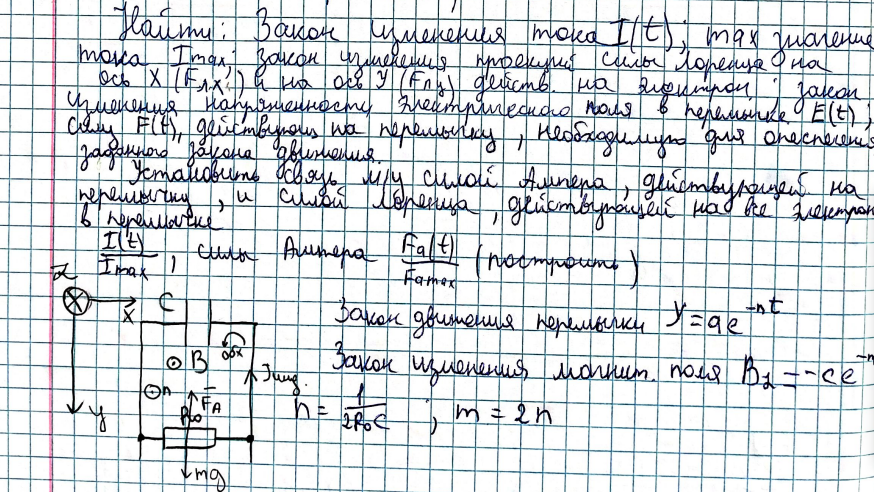 Найти: Закон изменения тока I(t); max значение
тока Imax; закон изменения проекции силы Лоренца на
ось X (Fлx) и на ось У (Fлy) действ. на электрон; закон
изменения напряженности электрического поля в перемычке E(t);
силу F(t), действующ на перемычку, необходимую для опеспечения
заданного закона движения.
Установить связь м/у силой Ампера, действующей на
перемычку, и силой Лоренца, действующей на все электрон
в перемычке
I(t)/Imax, силы Ампера Fa(t)/Famax (построить)
Z
X
C
обх
Закон движения перемычки Y=ae^-nt
B
Закон изменения магнит. поля Bz=-ce^-
n
Iинд.
F̄A
R0
n=1/2R0C; m=2n
y
mg